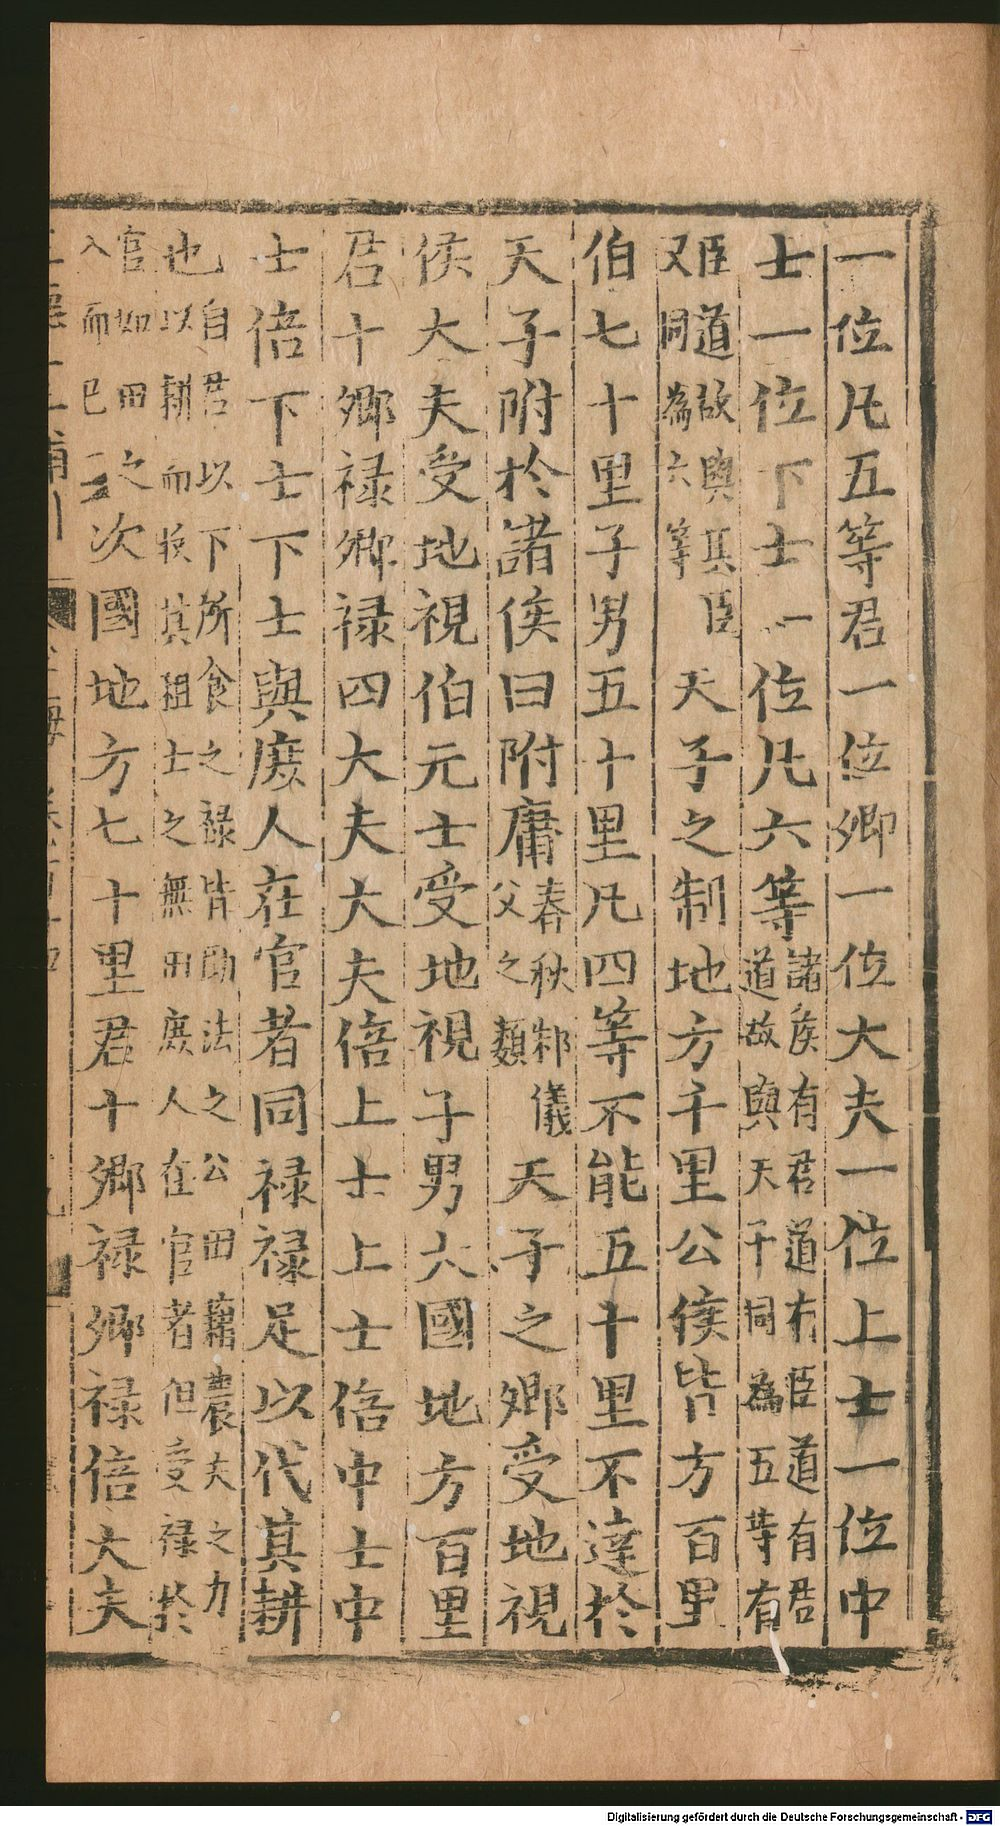 一位凡五等君一位卿一位大夫一位上士一位中
士一位下士一位凡六等諸侯有君道有臣道有君
道故與天子同為五等有
臣道故與其臣
又同為六等天子之制地方千里公侯皆方百里
伯七十里子男五十里凡四等不能五十里不達於
天子附於諸侯曰附庸春秋邾儀
父之類天子之卿受地視
侯大夫受地視伯元士受地視子男大國地方百里
君十卿禄卿禄四大夫大夫倍上士上士倍中士中
士倍下士下士與庶人在官者同禄禄足以代其耕
也自君以下所食之禄皆助法之公田藉農夫之力
以耕而收其租士之無田庶人在官者但受禄於
官如田之
入而已次國地方七十里君十卿禄卿禄倍大夫
Digitalisierung gefördert durch die Deutsche Forschungsgemeinschaft - DFG